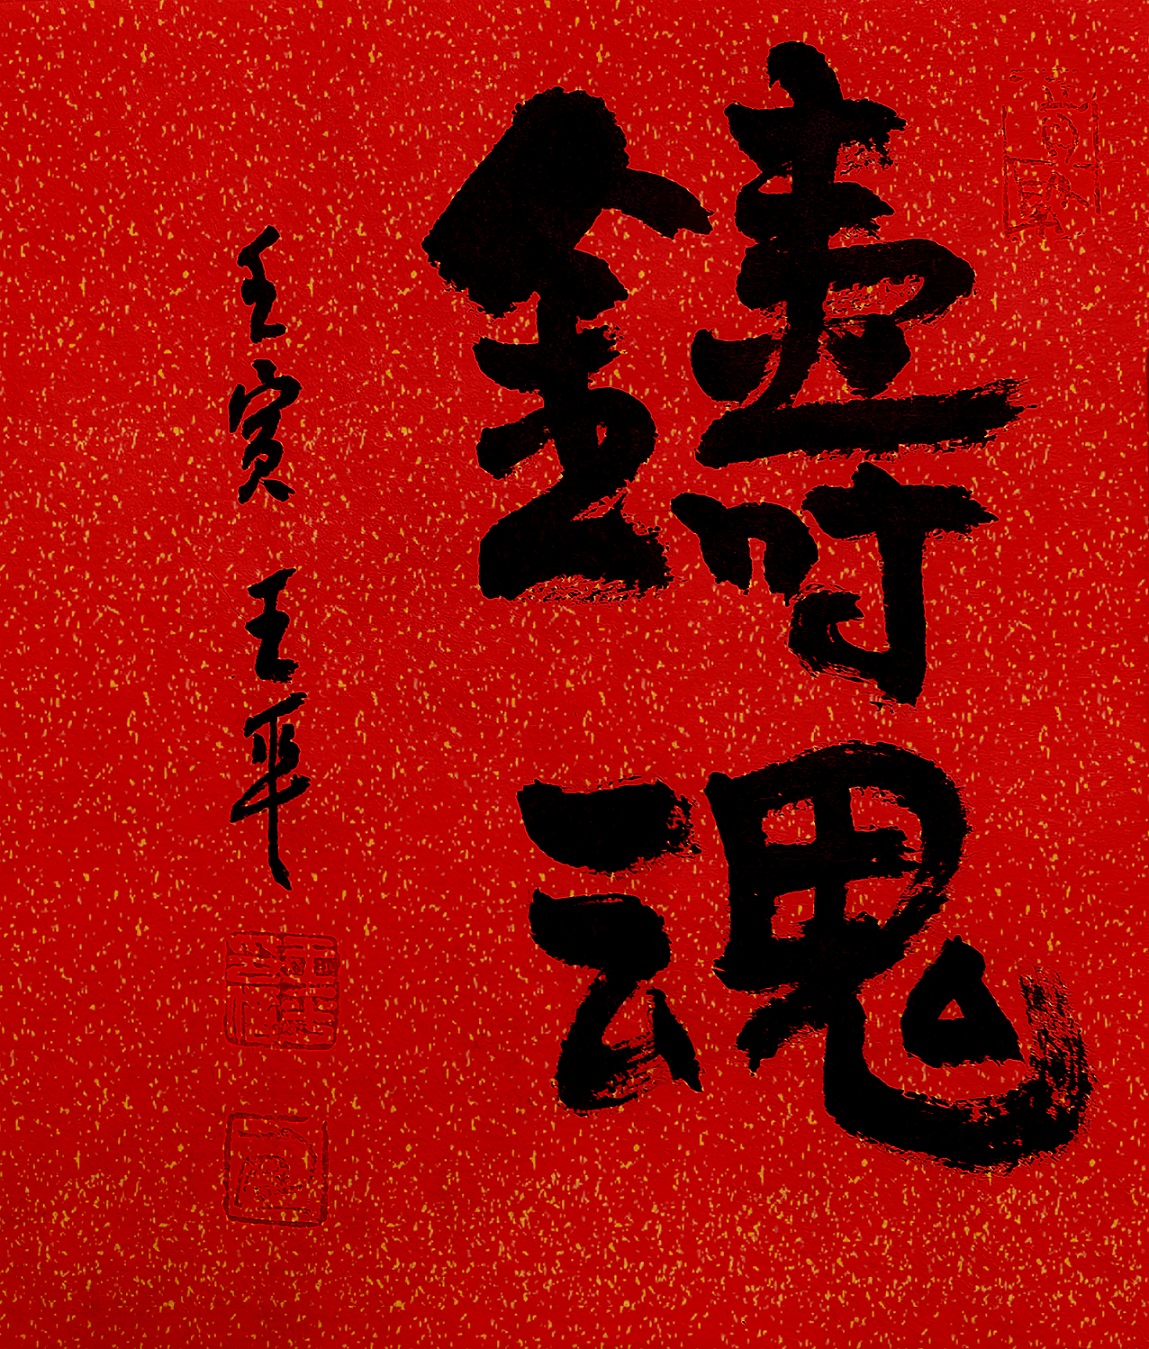 鑄魂
壬寅 王平